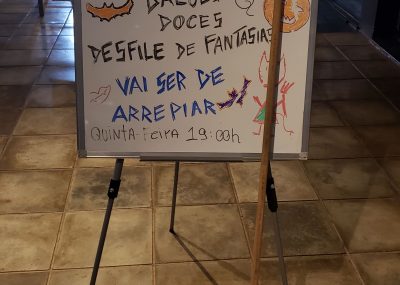 DOCES
DESFILE DE FANTASIAS
VAI SER DE
ARREPIAR
QUINTA-FEIRA 19:00h